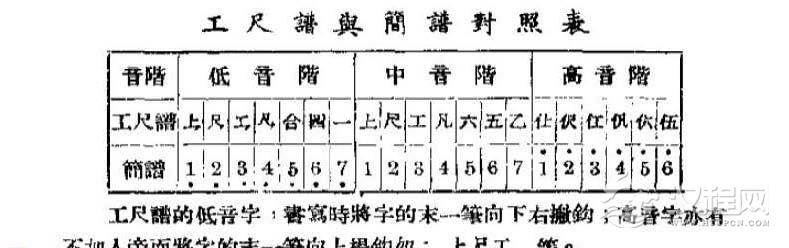 工尺譜與簡譜對照表
音階 低音階 中音階 高音階
工尺譜 上 尺 工 凡 合 四 一 上 尺 工 凡 六 五 乙 仩 伬 仜 𠆩 伍
簡譜 1 2 3 4 5 6 7 1 2 3 4 5 6 7 1 2 3 4 5 6
工尺譜的低音字，書寫時將字的末一筆向下右撇鈎；高音字亦有
不加人旁而將字的末一筆向上揚鈎如：上尺工 等。
工程网